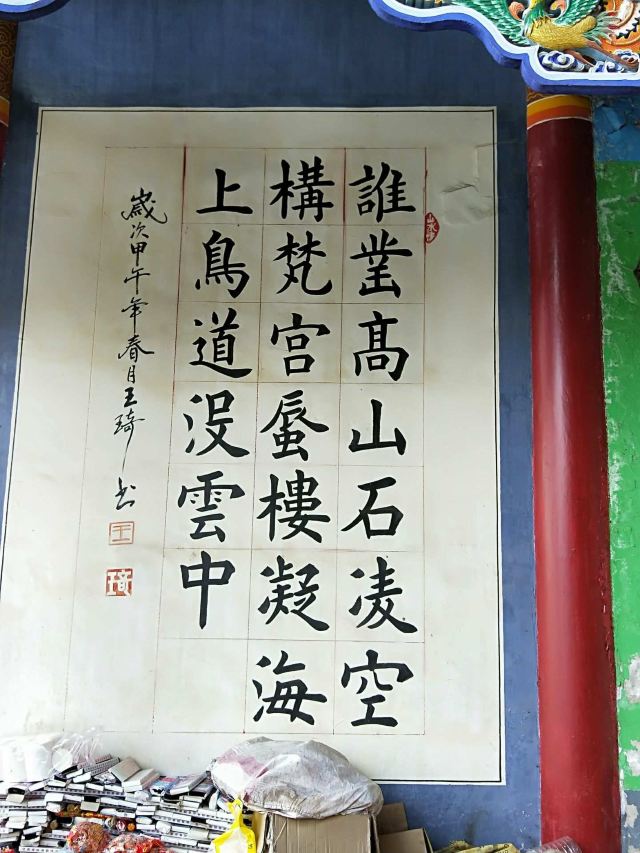 誰鑿高山石凌空
構梵宮蜃樓凝海
上鳥道没雲中
歲次甲午年春月王琦书
王
琦